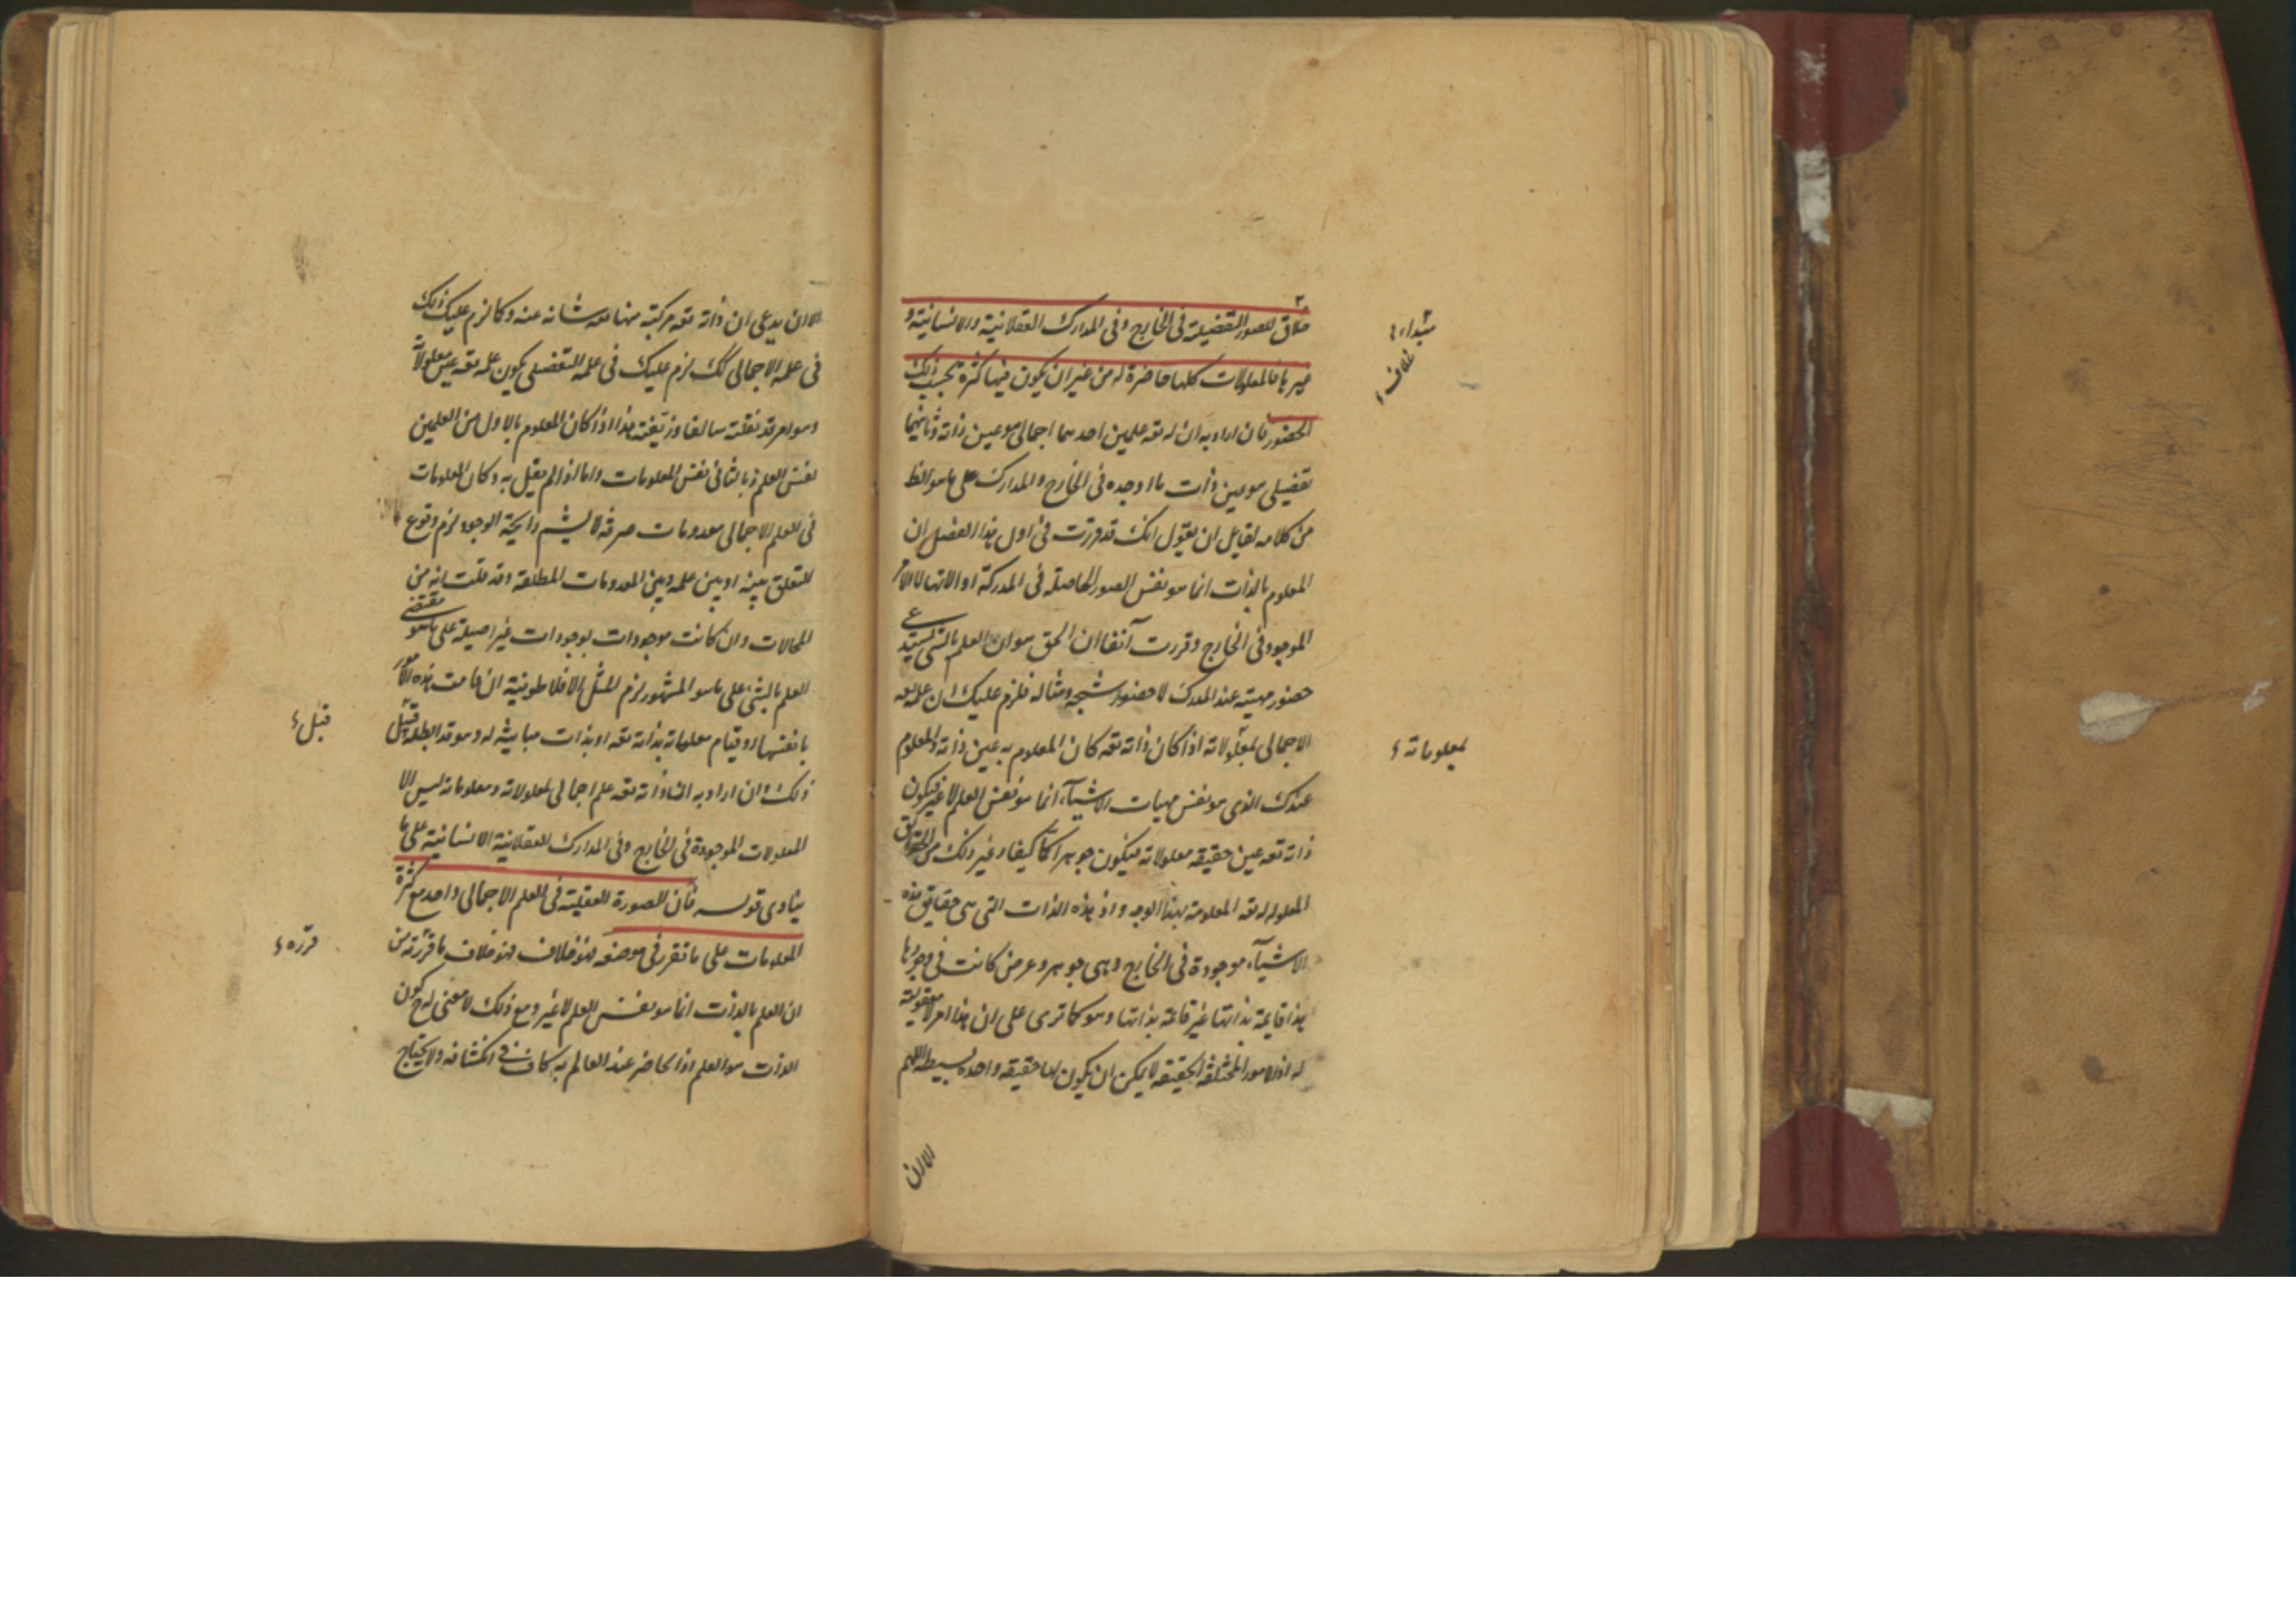 خلاق للصور التفضيلية في الخارج وفي المدارك العقلانية والانسانية و
غيرها فالمعلولات كلها حاضرة له من غير ان يكون فيها كثرة بحسب ذلك
الحضور فان اراد به ان له تعه علمين احدهما اجمالى هو عين ذاته وثانيهما
تفضيلى هو عين ذات ما اوجده في الخارج والمدارك على ما هو الظ
من كلامه لقايل ان يقول انك قد قررت في اول هذا الفصل ان
المعلوم بالذات انما هو نفس الصور الحاصلة في المدركة او الاتها لا الامر
الموجود في الخارج وقررت آنفا ان الحق هو ان العلم بالشئ يستدعى
حضور مهيته عند المدرك لا حضور شبحه ومثاله فلزم عليك ان علمه تعه
الاجمالى بمعلولاته اذا كان ذاته تعه كان المعلوم به عين ذاته والمعلوم
عندك الذى هو نفس مهيات الاشيآء انما هو نفس العلم لا غير فيكون
ذاته تعه عين حقيقه معلولاته فيكون جوهرا كما كيفا وغير ذلك من الحقايق
المعلوله له تعه المعلومة بهذا الوجه واذ هذه الذات التى هى حقايق هذه
الاشيآء موجودة في الخارج وهى جوهر وعرض كانت في وجودها
هذا قايمة بذاتها غير قائمة بذاتها وهو كما ترى على ان هذا امر لا معقولية
له اذ الامور المختلفة الحقيقه لا يمكن ان يكون لها حقيقه واحده بسيطه اللهم
الا ان
مبتداء
خلاف
بمعلوماته
الا ان يدعى ان ذاته تعه مركبته منها تعه شانه عنه وكما لزم عليك ذلك
في علمه الاجمالى كك لزم عليك في علمه التفضيلى كون علمه تعه عين معلولاته
وهو امر قد نقلته سالفا وزيفته هذا اذا كان المعلوم بالاول من العلمين
نفس العلم وبالثاني نفس المعلومات واما اذا لم يقل به وكان المعلومات
في العلم الاجمالى معدومات صرفة لا يشم رايحة الوجود لزم وقوع
التعلق بينه او بين علمه وبين المعدومات المطلقة وقد قلت انه من
المحالات وان كانت موجودات بوجودات غير اصيلة على ما هو مقتضى
العلم بالشئ على ما هو المشهور لزم المثل الافلاطونية ان قامت هذه الامور
بانفسها او قيام معلوماته بذاته تعه او بذات مباينة له وهو قد ابطله قبل
ذلك وان اراد به ان ذاته تعه علم اجمالى لمعلولاته ومعلوماته ليس الا
المعلولات الموجودة في الخارج وفي المدارك العقلانية الانسانية على ما
ينادى قوله فان الصورة العقلية في العلم الاجمالى واحد مع كثرة
المعلومات على ما تقرر في موضعه فهو خلاف فهو خلاف ما قررته من
ان العلم بالذات انما هو نفس العلم لا غير ومع ذلك لا معنى له ح كون
الذات هو العلم اذ الحاضر عند العالم به كاف في انكشافه ولا يحتاج
قبل
قرره